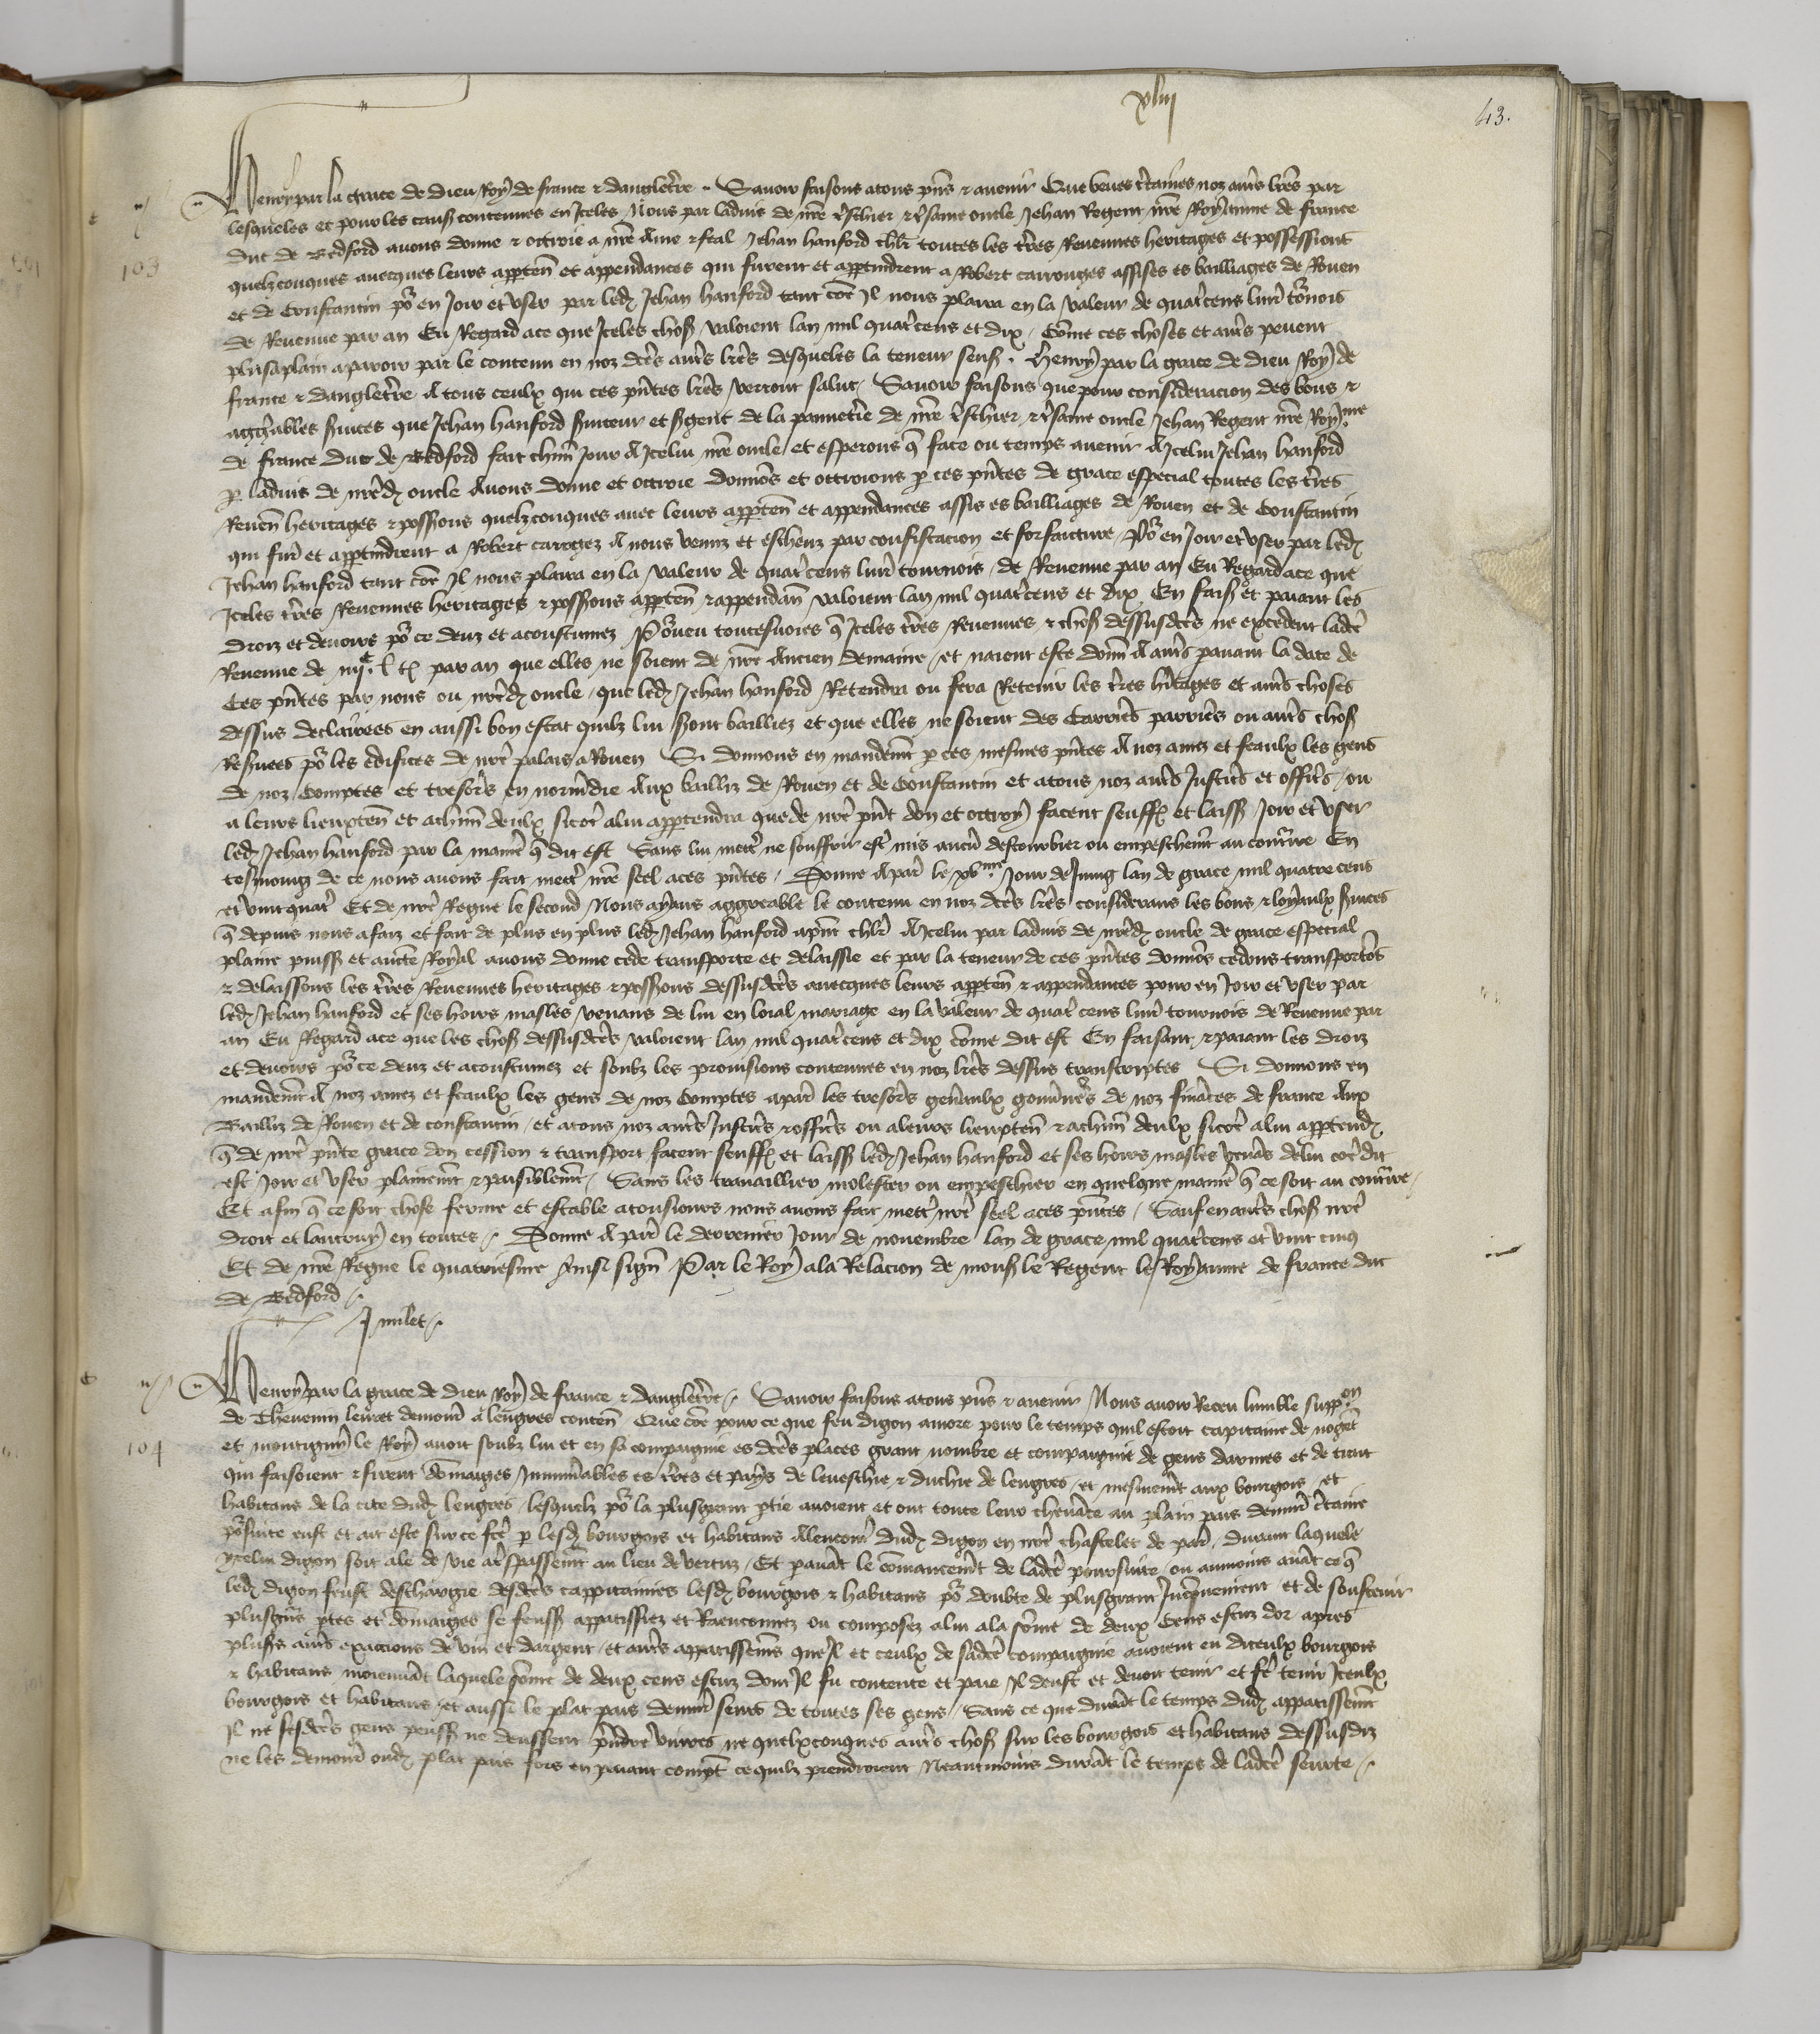 xliii
43.
Henry par la grace de dieu Roy de france & dangletre. Savoir faisons a tous pns & avenir Que veues ctaines noz aures lres par
103
lesqueles et pour les causes contenues en Iceles Nous par ladvis de nre treschier & tresame oncle Jehan Regent nre Royaume de france
duc de Bedford avons donne & octroie a nre Ame & feal Jehan hanford chlr toutes les tres Revenues heritages et possessions
quelzconques avecques leurs apptenñ et appendances qui furent et apptindrent a Robert carrouges assises es bailliages de Rouen
et de Constantin por en Joir et user par led Jehan hanford tant coe Il nous plaira en la valeur de quatcens livres tornois
de Revenue par an Eu Regard ace que Iceles choses valoient lan mil quatcens et dix / Come ces choses et aures pevent
plus aplain aparoir par le contenu en noz dces aures lres desqueles la teneur sensuit . Henry par la grace de dieu Roy de
france & dangletre A tous ceulx qui ces pntes lres verront salut / Savoir faisons que pour consideracion des bons &
aggreables services que Jehan hanford serviteur et sergent de la panneterie de nre treschier & tresame oncle Jehan Regent nre Royme
de france duc de Bedford fait chun Jour A Icelui nre oncle et esperons q face ou temps avenir A Icelui Jehan hanford
p ladvis de nred oncle Avons donne et octroie donnos et octroions p ces pntes de grace especial toutes les tres
Revenñ heritages & possessions quelzconques avec leurs apptenñ et appendances assis es bailliages de Rouen et de Constantin
qui furent et apptindrent a Robert carrogez A nous venuz et escheuz par confiscacion et forfaicture / Por en Joir et user par led
Jehan hanford tant coe Il nous plaira en la valeur de quatcens livres tournois / de Revenue par an Eu Regard ace que
Iceles tres Revenues heritages & possessions apptenñ & appendanñ valoient lan mil quatcens et dix En faisant et paiant les
droiz et devoirs por ce deuz et acoustumez Porveu toutesvoies q Iceles tres Revenues & choses dessusdces ne excedent ladce
Revenue de iiiic l t par an que elles ne soient de nre Ancien demaine / et naient este donñ A aures pavant la date de
Ces pntes par nous ou nred oncle / que led Jehan hanford Retendra ou fera Retenir les tres hitages et aures choses
dessus declairees en aussi bon estat quilz lui seront bailliez et que elles ne soient des Carrieres parrieres ou aures choses
Reservees por les edifices de nre palais a Rouen Si donnons en mandemt p ces mesmes pntes A noz amez et feaulx les gens
de noz Comptes et tresoriers en normdie Aux bailliz de Rouen et de Constantin et a tous noz aures Justiciers et officiers / ou
a leurs lieuxtenñ et achun deulx sicoe alui apptendra que de nre pnt don et octroy facent seuffrent et laissent Joir et user
led Jehan hanford par la maniere q dit est Sans lui mettre ne souffrir estre mis aucun destourbier ou empeschemt au contraire En
tesmoing de ce nous avons fait mettre nre seel a ces pntes / Donne A paris le xvme Jour de Juing lan de grace mil quatre cens
et vint quat Et de nre Regne le second Nous ayans aggreable le contenu en noz dces lres considerans les bons & loyaulx services
q depuis nous a faiz et fait de plus en plus led Jehan hanford apnt chlr A Icelui par ladvis de nred oncle de grace especial
plaine puissance et aucte Royal avons donne cede transporte et delaissie et par la teneur de ces pntes donnos cedons transportos
& delaissons les tres Revenues heritages & possessions dessusdces avecques leurs apptenñ & appendances pour en Joir et user par
led Jehan hanford et ses hoirs masles venans de lui en loial mariage en la valeur de quat cens livres tournois de Revenue par
an Eu Regard ace que les choses dessusdces valoient lan mil quatcens et dix come dit est En faisant & paiant les droiz
et devoirs por ce deuz et acoustumez et soubz les provisions contenues en noz lres dessus transcriptes Si donnons en
mandemt A noz amez et feaulx les gens de noz Comptes a paris les tresoriers genaulx gouvneurs de noz finances de france Aux
Bailliz de Rouen et de constantin / et a tous noz aures Justiciers & officiers ou aleurs lieuxtenñ & achun deulx sicoe alui apptend
q de nre pnte grace don cession & transport facent seuffrent et laissent led Jehan hanford et ses hoirs masles venans de lui coe dit
est Joir et user plainemt & paisiblemt / Sans les travaillier molester ou empeschier en quelque maniere q ce soit au contraire /
Et afin q ce soit chose ferme et estable atousiours nous avons fait mettre nre seel a ces pntes / Sauf en aures choses nre
droit et lautruy en toutes / Donne A paris le derrenier Jour de novembre lan de grace mil quatcens et vint cinq
Et de nre Regne le quatriesme Ainsi signe Par le Roy ala Relacion de mons le Regent le Royaume de france duc
de Bedford /
J milet /
Henry par la grace de dieu Roy de france & dangletre / Savoir faisons a tous pns & avenir Nous avoir Receu lumble suppon
de Thevenin levret demour a lengres contenñ Que coe pour ce que feu digon amore pour le temps quil estoit capitaine de nogent
104
et montigny le Roy avoit soubz lui et en sa compaignie es dces places grant nombre et compaignie de gens darmes et de trait
qui faisoient & firent domaiges Innumables es tres et pays de leveschie & duchie de lengres / et mesmemt aux bourgois et
habitans de la cite dud lengres / lesquelz por la plusgrant ptie avoient et ont toute leur chevance au plain pais demour ctaine
porsuite eust et ait este sur ce fce p lesd bourgois et habitans Alencontre dud digon en nre chastelet de paris / durant laquele
ycelui digon soit ale de vie a trespassemt au lieu de vertuz / Et pavant le comancemt de ladce poursuite / ou aumoins avant ce q
led digon feust deschargie desdces cappitaineries lesd bourgois & habitans por doubte de plusgrant Inconvenient et de soustenir
plusgrs ptes et domaiges se feussent appatissiez et Raenconnez ou composez alui ala some de deux Cens escuz dor apres
pluss aures exactions de vin et dargent / et aures appatissemens que Il et ceulx de sadce compaignie avoient eu diceulx bourgois
& habitans moiennant laquele some de deux cens escuz dont Il fu contente et paie Il deust et devoit tenir et fe tenir Iceulx
bourgois et habitans / et aussi le plat pais demour seurs de toutes ses gens / Sans ce que durant le temps dud appatissemt
Il ne sesdces gens peussent ne deussent prendre vivres ne quelxconques aures choses sur les bourgois et habitans dessusdiz
ne les demour oud plat pais fors en paiant compt ce quilz prendroient Neantmoins durant le temps de ladce seurte /